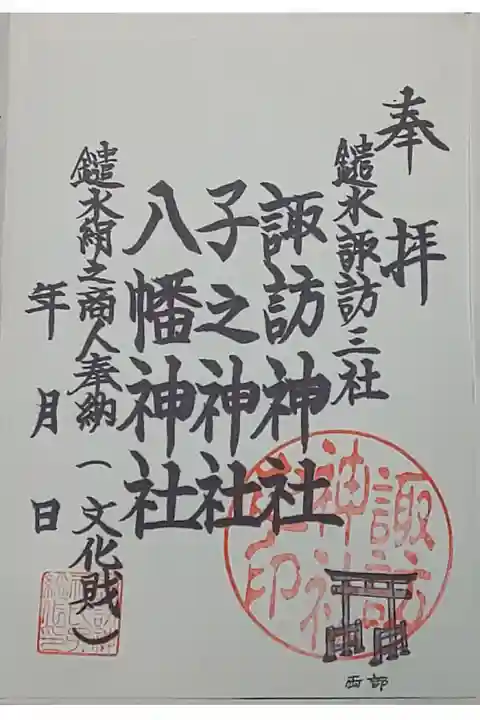 奉拝
鑓水諏訪三社
諏訪神社
子之神社
八幡神社
鑓水絹之商人奉納(文化財)
年 月 日
諏訪
神社
印
西部